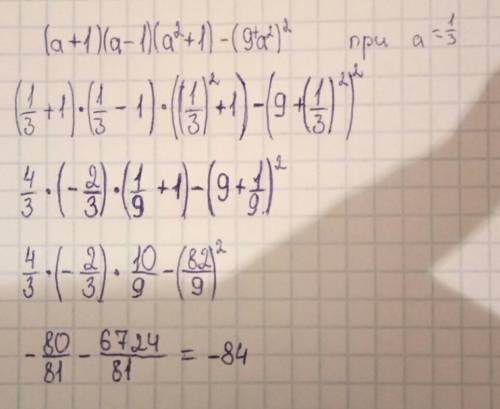 (a+1)(a-1)(a²+1)-(9+a²)² при a=1/3
(1/3+1)·(1/3-1)·((1/3)²+1)-(9+(1/3)²)²
4/3·(-2/3)·(1/9+1)-(9+1/9)²
4/3·(-2/3)·10/9-(82/9)²
-80/81-6724/81=-84